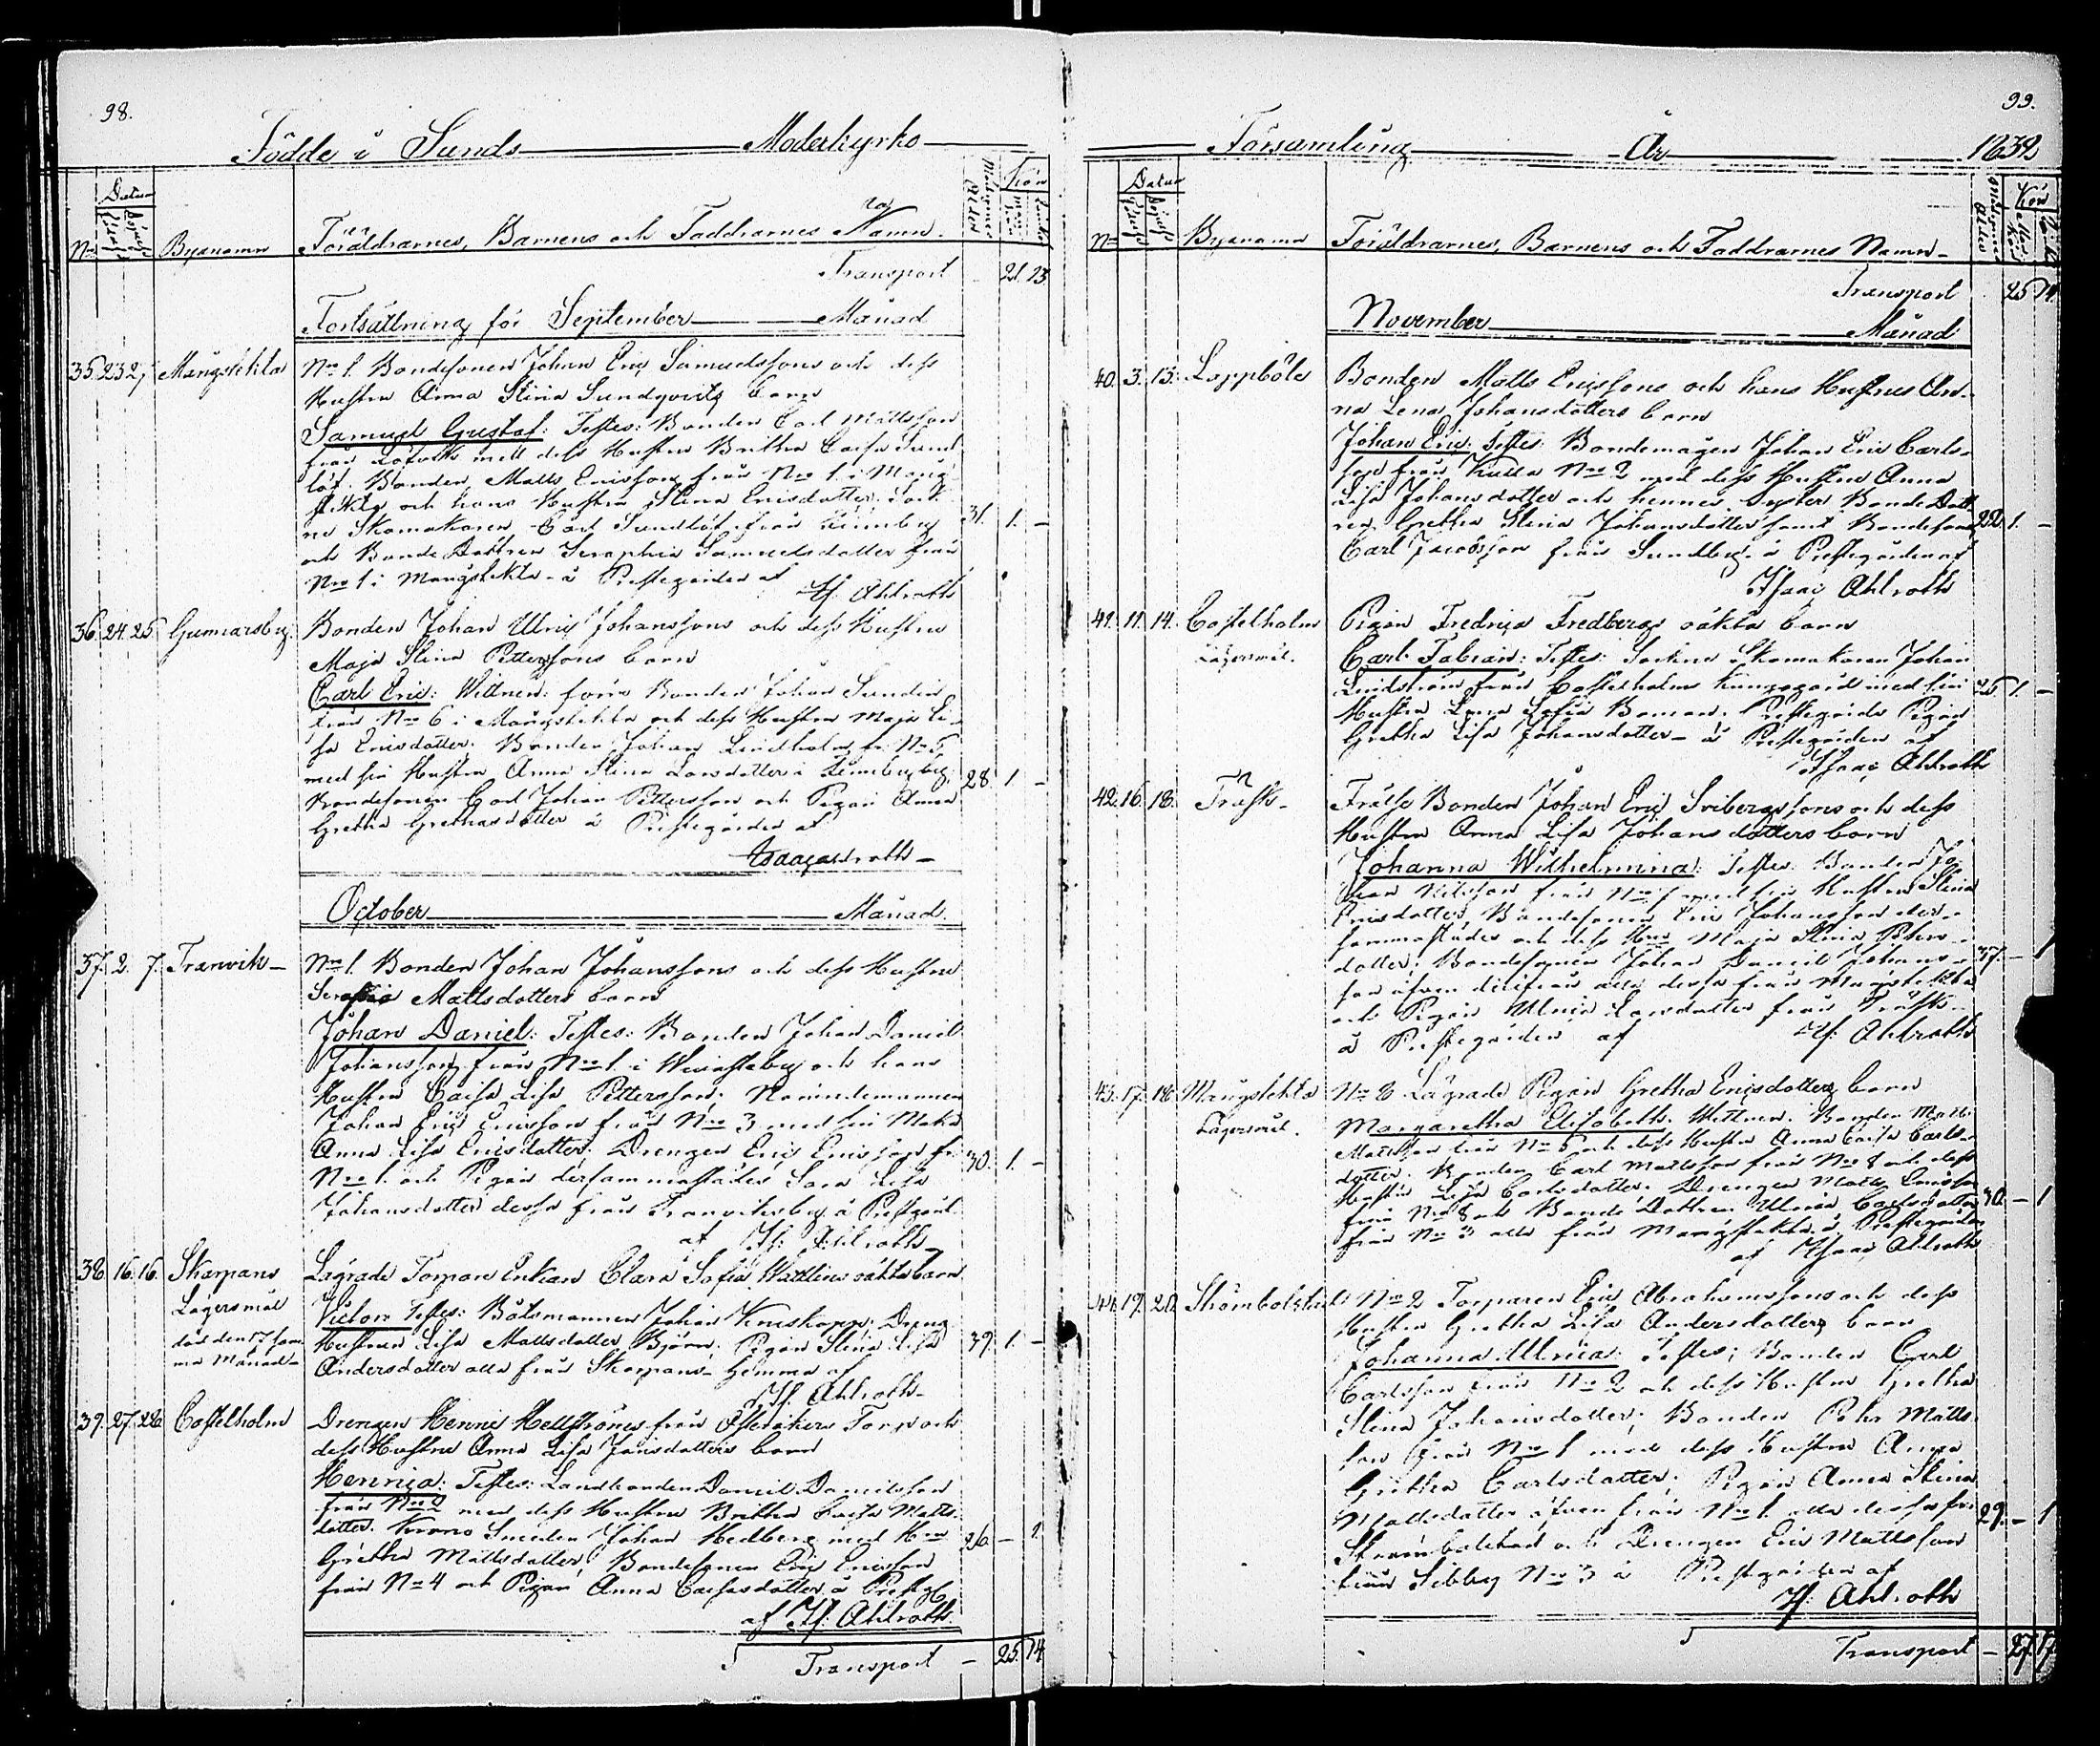 98.
Födde i Sunds Moderkyrko
Datum
Kön
No
Bysnamn
Föräldrarnes, Barnens och Faddrarnes Namn.
Transport 21. 13.
Fortsättning för September Månad
35. 23. 2/ Mångstekta No 1. Bondesonen Johan Eric Samuelssons och dess
Hustru Anna Stina Sundqvists barn
Samuel Gustaf: Testes: Bonden Carl Mattsson
från med dess Hustru Britha Caisa Sund
löf. Bonden Matts Ericsson från No 1. i Mång
stekta och hans Hustru Stina Ericsdotter. Sock
ne Skomakaren Carl Sundlöf från 31. 1. -
och Bonde Dottren Seraphia Samuelsdotter från
No 1 i Mångstekta - å Prestegården af
If. Ahlroth
36. 24. 25. Gunnarsby. Bonden Johan Ulric Johanssons och dess Hustru
Maja Stina Pettersons barn
Carl Eric: Wittnen: förra Bonden Johan Sundin
från No 6 i Mångstekta och dess Hustru Maja Li-
sa Ericsdotter. Bonden Johan Lindholm fr. No 5
med sin Hustru Anna Stina Larsdotter i 28. 1. -
Bondesonen Carl Johan Pettersson och Pigan Anna
Gretha Grethasdotter å Prestegården af
Isaac Ahlroth -
October Månad
37. 2. 7. Tranvik - No 1. Bonden Johan Johanssons och dess Hustru
Serafia Mattsdotters barn
Johan Daniel: Testes: Bonden Johan Daniel
Johansson från No 1. i och hans
Hustru Caisa Lisa Pettersson. Nämndemannen
Johan Eric Ericsson från No 3 med sin Maka
Anna Lisa Ericsdotter; Drengen Eric Ericsson fr. 30. 1. -
No 1. och Pigan dersammastädes Sara Lisa
Johansdotter dessa från Tranviksby å Prestgård.
af If. Ahlroth
38. 16. 16. Skarpans Lägrade Torpare Enkan Clara Sofia Wadlins oäkta barn
Lägersmål Victor Testes: Båtsmannen Johan Knuskopp: Dreng
död den 17 sam- Hustrun Lisa Mattsdotter Björn. Pigan Stina Lisa 39. 1. -
ma Månad - Andersdotter alla från Skarpans - hemma af
If. Ahlroth -
39. 27. 28. Castelholm Drengen Henric Hellströms från Österåkers Torp och
dess Hustru Anna Lisa Jansdotters barn
Henrica: Testes: Landbonden Daniel Danielsson
från No 2 med dess Hustru Britha Caisa Matts-
dotter. Krono Smeden Johan Hedberg med Hru 26. - 1.
Gretha Mattsdotter; Bondesonen Eric Ericsson
från No 4 och Pigan Anna Caisasdotter å Prestg.
af If. Ahlroth.
Transport - 25. 14
99.
Församling År 1832
No
Datum
Bysnamn
Föräldrarnes, Barnens och Faddrarnes Namn -
Kön
Transport 25 14
November Månad
40. 3. 13. Lappböle Bonden Matts Ericssons och hans Hustrus An-
na Lena Johansdotters barn
Johan Eric: Testes: Bondemågen Johan Eric Carls-
son från Kulla No 2 med dess Hustru Anna
Lisa Johansdotter och hennes Syster Bonde Dott
ren Gretha Stina Johansdotter samt Bondesonen 22. 1. -
Carl Jacobsson från Sundby - å Prestegården af
Isaac Ahlroth
41. 11. 14. Castelholm Pigan Fredrica Fredbergs oäkta barn
Lägersmål. Carl Fabian: Testes: Sockne Skomakaren Johan
Lindström från Castelholms Kungsgård med sin 25 1. -
Hustru Lena Sofia Boman. Prestegårds Pigan
Gretha Lisa Johansdotter - å Prestegården af
Isaac Ahlroth
42. 16. 18. Träsk - Frälse Bonden Johan Eric Svibergssons och dess
Hustru Anna Lisa Johansdotters barn
Johanna Wilhelmina: Testes: Bonden Jo-
han Nilsson från No 1 med sin Hustru Stina
Ericsdotter, Bondesonen Eric Johansson der-
sammastädes och dess Hru Maja Stina Pehrs-
dotter. Bondesonen Johan Daniel Johans- 37. - 1
son äfven alla dessa från Mångstekta
och Pigan Ulrica Larsdotter från Träsk -
å Prestegården af If. Ahlroth
43. 17. 18. Mångstekta No 8 Lägrade Pigan Gretha Ericsdotters barn
Lägersmål. Margaretha Elisabeth. Wittnen: Bonden Matts
Mattsson från No 5 och dess Hustru Anna Caisa Carls-
dotter. Bonden Carl Mattsson från No 8 och dess
Hustru Lisa Carlsdotter. Drengen Matts Ericsson 30. - 1
från No 8 och Bonde Dottren Ulrica Carlsdotter
från No 3 alla från Mångstekta, å Prestegården
af Isaac Ahlroth
44. 19. 20. Strömbolstad No 2 Torparen Eric Abrahamssons och dess
Hustru Gretha Lisa Andersdotters barn
Johanna Ulrica: Testes; Bonden Carl
Carlsson från No 2 och dess Hustru Gretha
Stina Johansdotter; Bonden Pehr Matts-
son från No 1 med dess Hustru Anna
Gretha Carlsdotter; Pigan Anna Stina
Mattsdotter äfven från No 1. alla dessa fr. 29. - 1
Strömbolstad och Drengen Eric Mattsson
från Sibby No 3 å Prestgården af
If. Ahlroth
Transport - 27. 17